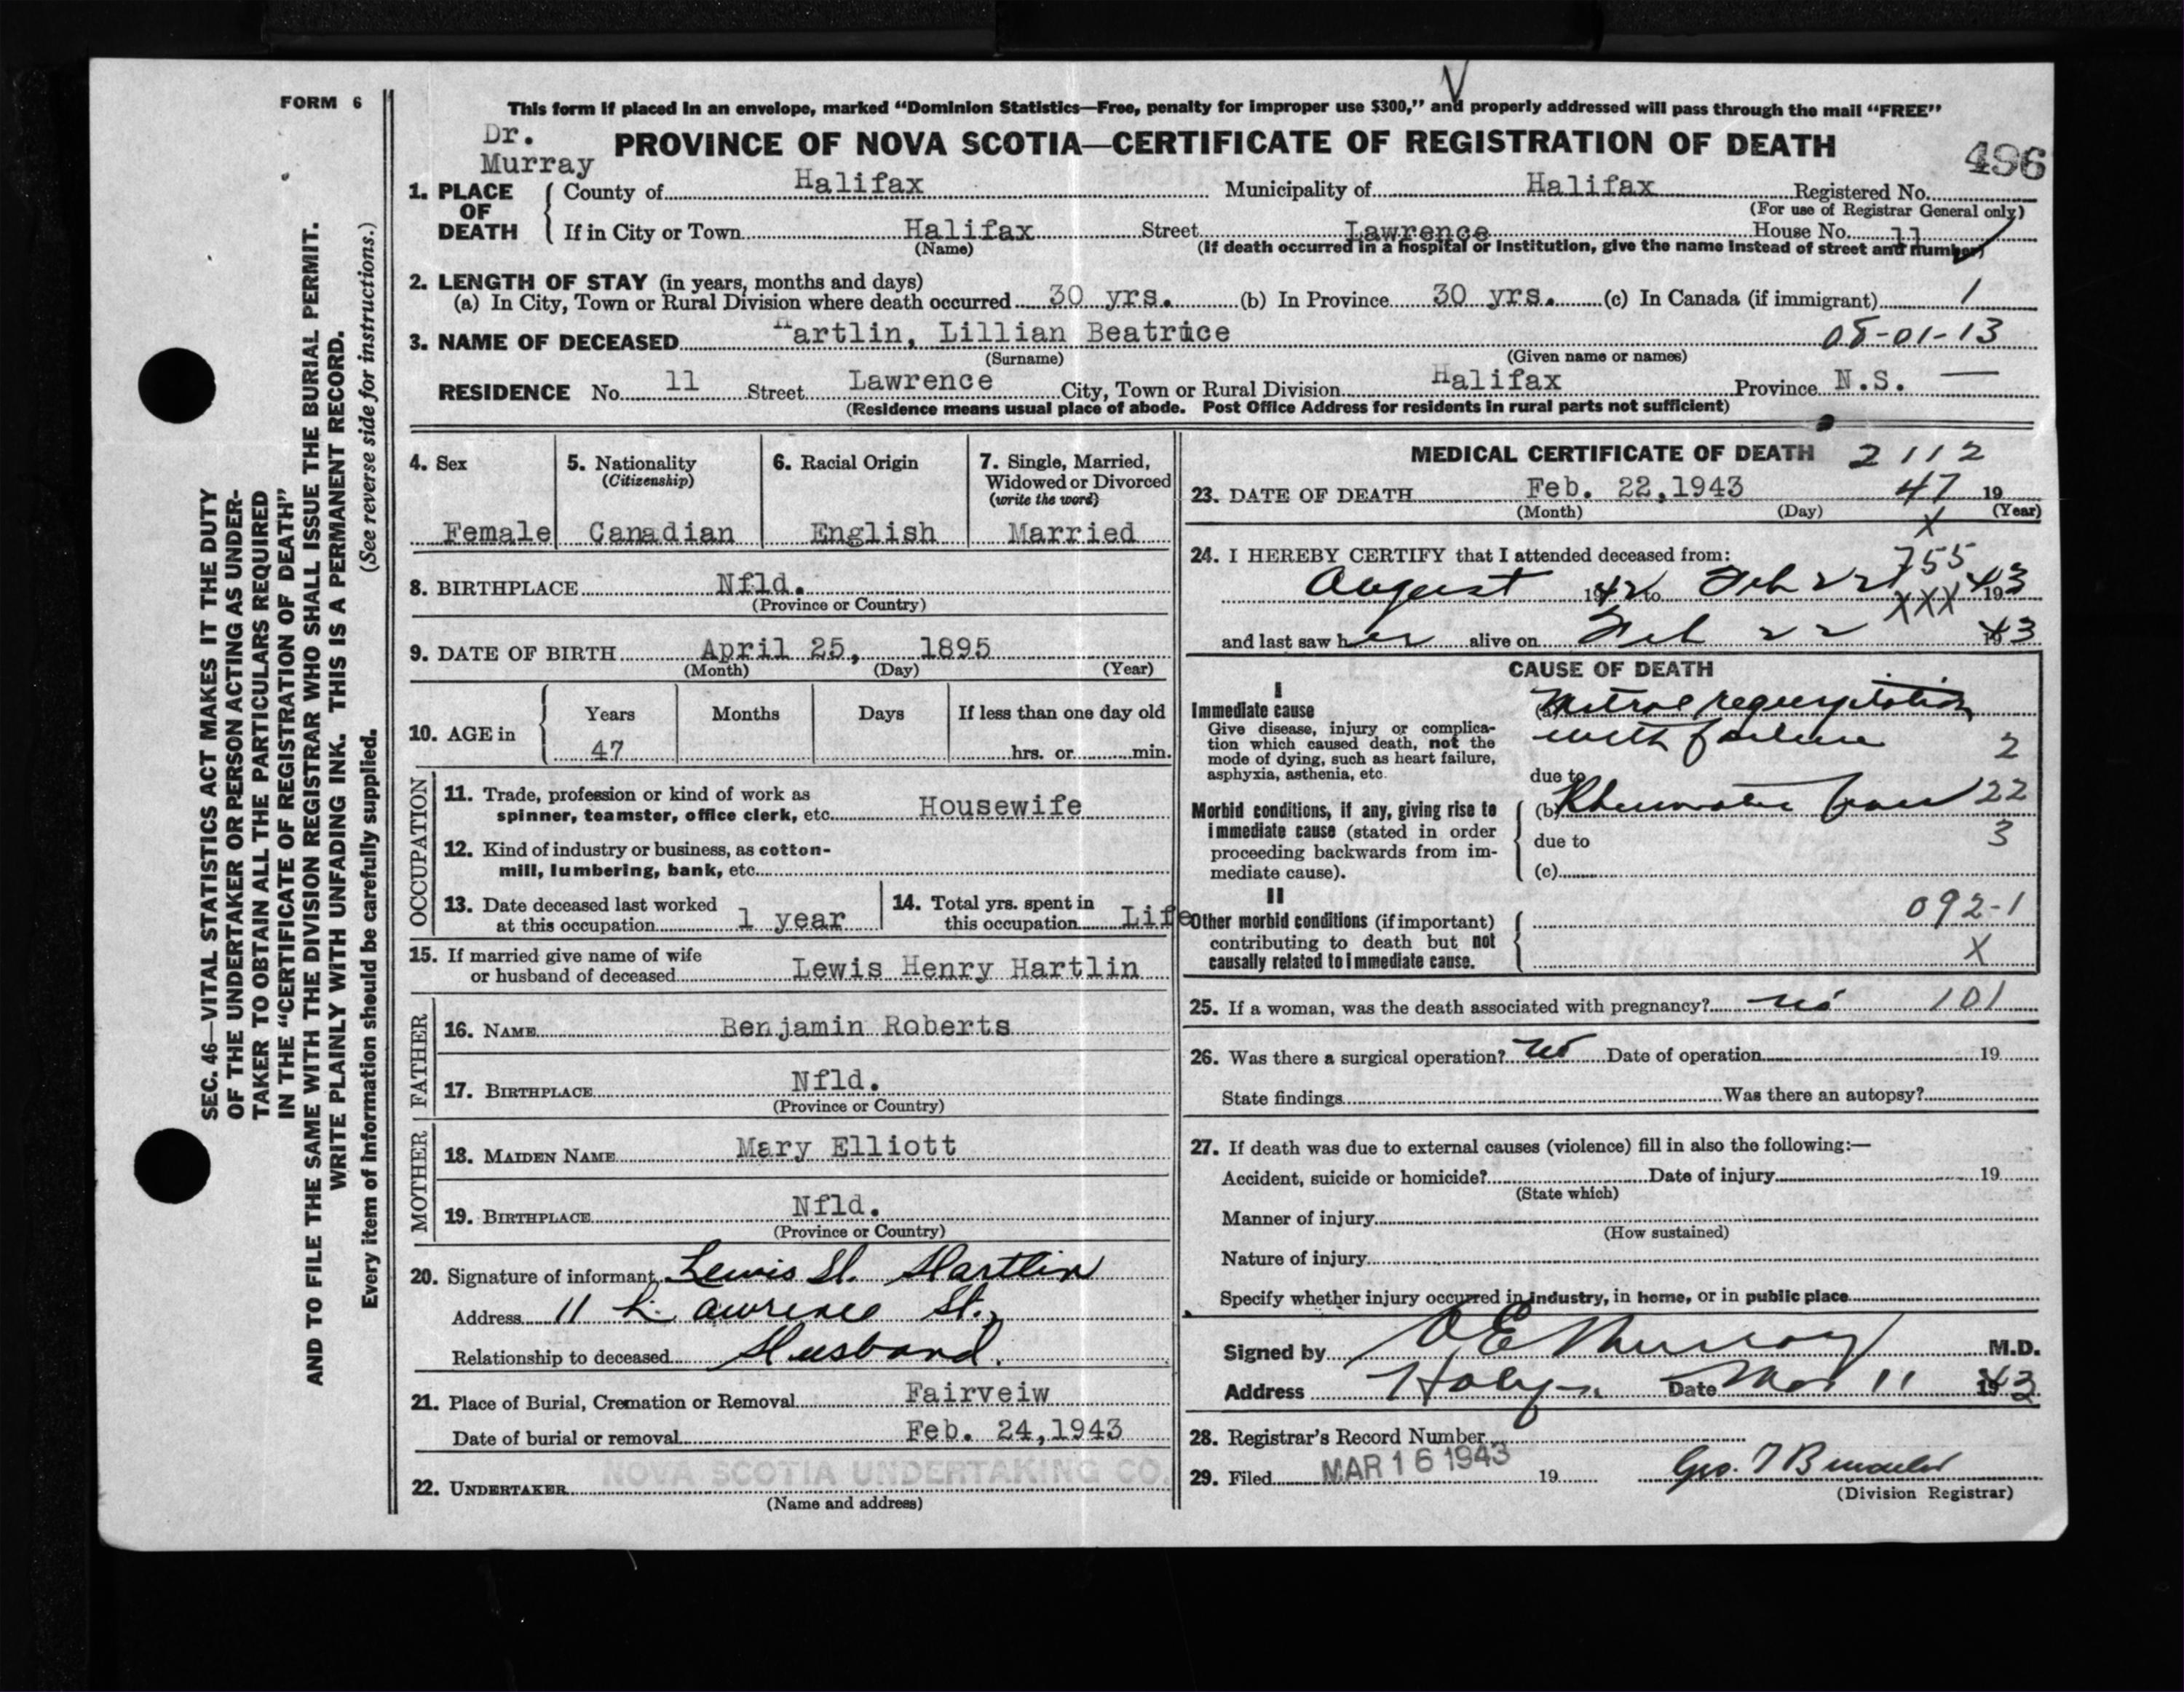 FORM 6
SEC. 46—VITAL STATISTICS ACT MAKES IT THE DUTY
OF THE UNDERTAKER OR PERSON ACTING AS UNDER-
TAKER TO OBTAIN ALL THE PARTICULARS REQUIRED
IN THE "CERTIFICATE OF REGISTRATION OF DEATH"
AND TO FILE THE SAME WITH THE DIVISION REGISTRAR WHO SHALL ISSUE THE BURIAL PERMIT.
WRITE PLAINLY WITH UNFADING INK. THIS IS A PERMANENT RECORD.
Every item of information should be carefully supplied. (See reverse side for instructions.)
This form if placed in an envelope, marked "Dominion Statistics—Free, penalty for improper use $300," and properly addressed will pass through the mail "FREE"
Dr.
Murray
PROVINCE OF NOVA SCOTIA—CERTIFICATE OF REGISTRATION OF DEATH
496
1. PLACE OF DEATH
County of Halifax Municipality of Halifax Registered No.
(For use of Registrar General only)
If in City or Town Halifax Street Lawrence House No. 11
(Name) (If death occurred in a hospital or institution, give the name instead of street and number)
2. LENGTH OF STAY (in years, months and days)
(a) In City, Town or Rural Division where death occurred 30 yrs. (b) In Province 30 yrs. (c) In Canada (if immigrant) 1
3. NAME OF DECEASED Hartlin, Lillian Beatrice 08-01-13
(Surname) (Given name or names)
RESIDENCE No. 11 Street Lawrence City, Town or Rural Division Halifax Province N.S. —
(Residence means usual place of abode. Post Office Address for residents in rural parts not sufficient)
4. Sex
Female
5. Nationality
(Citizenship)
Canadian
6. Racial Origin
English
7. Single, Married,
Widowed or Divorced
(write the word)
Married
8. BIRTHPLACE Nfld.
(Province or Country)
9. DATE OF BIRTH April 25, 1895
(Month) (Day) (Year)
10. AGE in
Years Months Days If less than one day old
47 hrs. or min.
OCCUPATION
11. Trade, profession or kind of work as
spinner, teamster, office clerk, etc. Housewife
12. Kind of industry or business, as cotton-
mill, lumbering, bank, etc.
13. Date deceased last worked
at this occupation 1 year
14. Total yrs. spent in
this occupation Life
15. If married give name of wife
or husband of deceased Lewis Henry Hartlin
FATHER
16. NAME Benjamin Roberts
17. BIRTHPLACE Nfld.
(Province or Country)
MOTHER
18. MAIDEN NAME Mary Elliott
19. BIRTHPLACE Nfld.
(Province or Country)
20. Signature of informant Lewis H. Hartlin
Address 11 Lawrence St.,
Relationship to deceased Husband.
21. Place of Burial, Cremation or Removal Fairveiw
Date of burial or removal Feb. 24,1943
22. UNDERTAKER NOVA SCOTIA UNDERTAKING CO.
(Name and address)
MEDICAL CERTIFICATE OF DEATH 2112
23. DATE OF DEATH Feb. 22,1943 47 19
(Month) (Day) (Year)
X
24. I HEREBY CERTIFY that I attended deceased from: 755
August 1942 to Feb 22 1943
XXX
and last saw her alive on Feb 22 1943
CAUSE OF DEATH
I
Immediate cause
Give disease, injury or complica-
tion which caused death, not the
mode of dying, such as heart failure,
asphyxia, asthenia, etc.
(a) Mitral regurgitation
with failure 2
due to
Morbid conditions, if any, giving rise to
immediate cause (stated in order
proceeding backwards from im-
mediate cause).
(b) Rheumatic fever 22
due to 3
(c)
II
Other morbid conditions (if important)
contributing to death but not
causally related to immediate cause.
092-1
X
25. If a woman, was the death associated with pregnancy? no 101
26. Was there a surgical operation? no Date of operation 19
State findings Was there an autopsy?
27. If death was due to external causes (violence) fill in also the following:—
Accident, suicide or homicide? Date of injury 19
(State which)
Manner of injury
(How sustained)
Nature of injury
Specify whether injury occurred in industry, in home, or in public place
Signed by Murray M.D.
Address Halifax Date Mar 11 1943
28. Registrar's Record Number
29. Filed MAR 16 1943 19 Geo.
(Division Registrar)